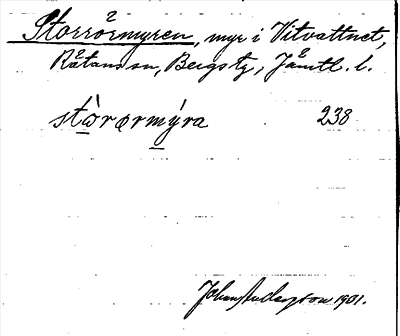 Storrörmyren, myr i Vitvattnet,
Råtan sn, Bergs tg, Jämtl. l.
stòrœrmýra 238
Johan Anderson 1901.